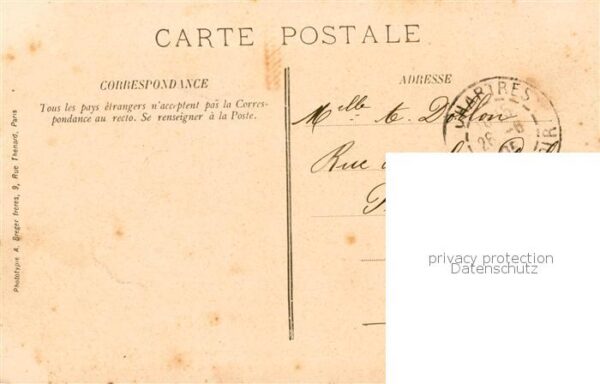 CARTE POSTALE
CORRESPONDANCE
Tous les pays étrangers n'acceptent pas la Corres-
pondance au recto. Se renseigner à la Poste.
ADRESSE
CHARTRES
28
Melle
Rue
Phototypie A. Breger frères, 9, Rue Thénard, Paris
privacy protection
Datenschutz